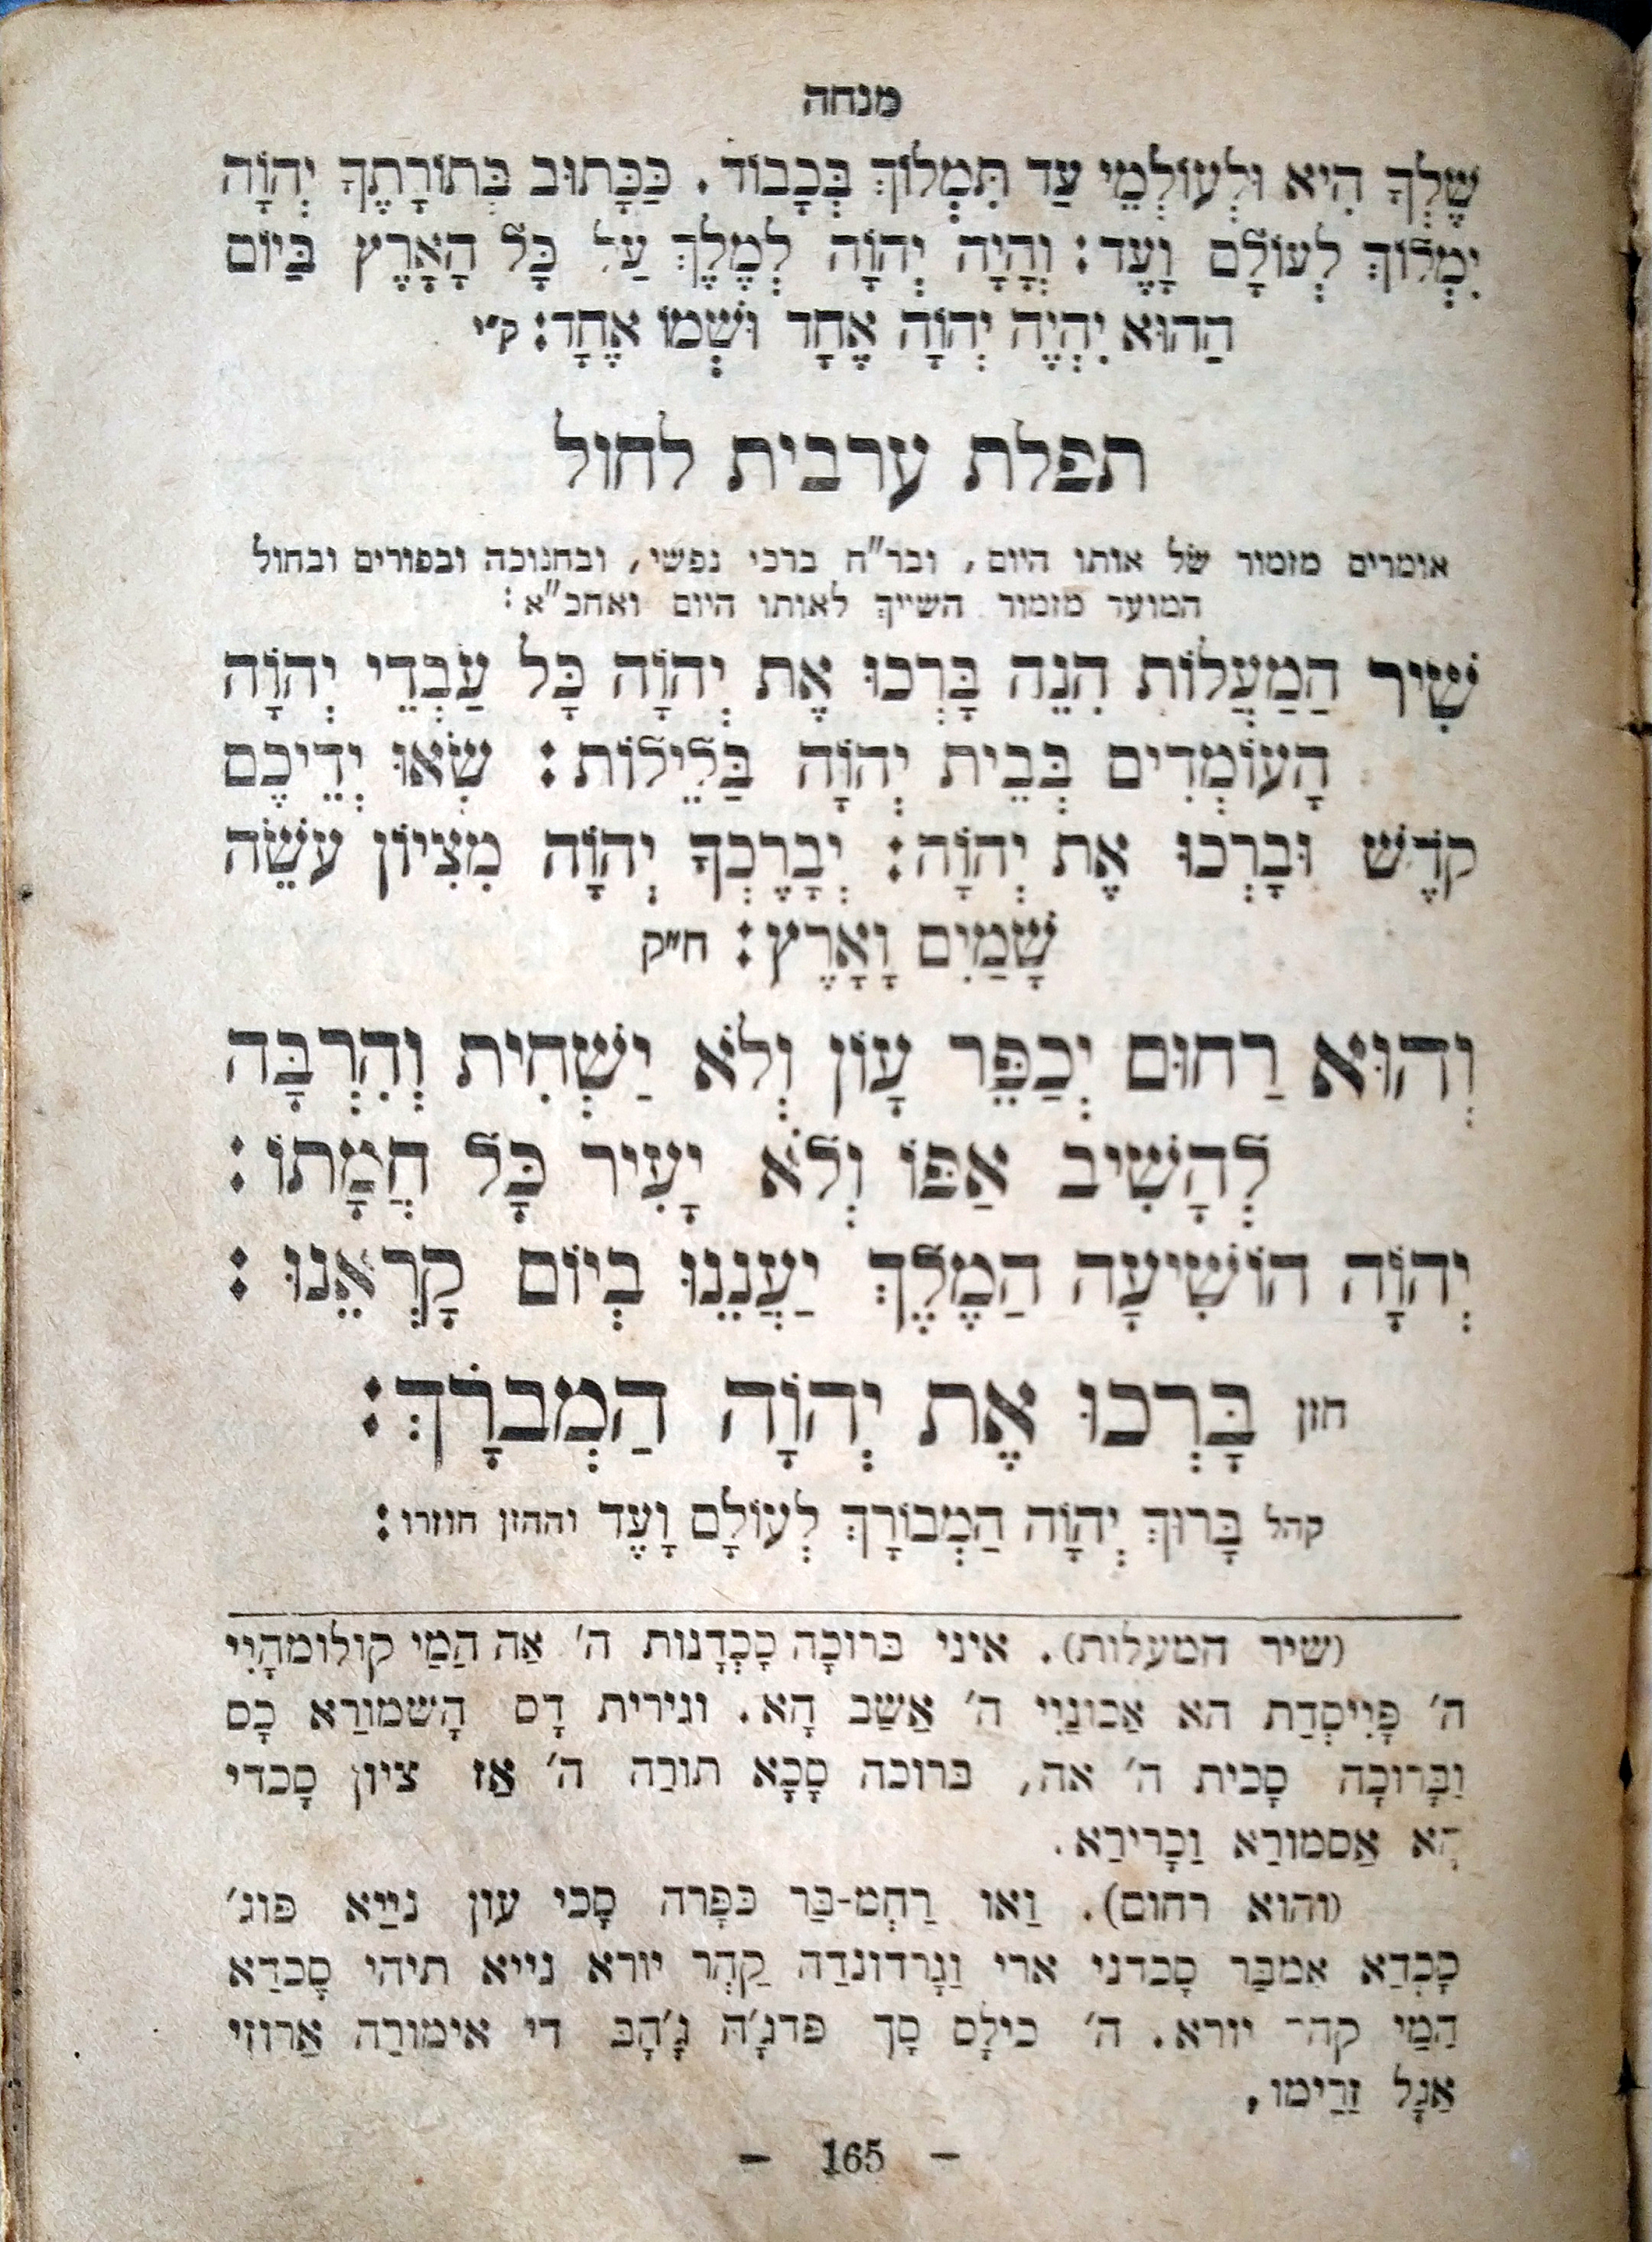 מנחה
שֶׁלְּךָ הִיא וּלְעוֹלְמֵי עַד תִּמְלוֹךְ בְּכָבוֹד. כַּכָּתוּב בְּתוֹרָתֶךָ יְהוָֹה
יִמְלוֹךְ לְעוֹלָם וָעֶד: וְהָיָה יְהוָֹה לְמֶלֶךְ עַל כָּל הָאָרֶץ בַּיּוֹם
הַהוּא יִהְיֶה יְהוָֹה אֶחָד וּשְׁמוֹ אֶחָד: ק״י
תפלת ערבית לחול
אומרים מזמור של אותו היום, ובר״ח ברכי נפשי, ובחנוכה ובפורים ובחול
המועד מזמור השייך לאותו היום ואחכ״א:
שִׁיר הַמַּעֲלוֹת הִנֵּה בָּרְכוּ אֶת יְהוָֹה כָּל עַבְדֵי יְהוָֹה
הָעוֹמְדִים בְּבֵית יְהוָֹה בַּלֵּילוֹת: שְׂאוּ יְדֵיכֶם
קֹדֶשׁ וּבָרְכוּ אֶת יְהוָֹה: יְבָרֶכְךָ יְהוָֹה מִצִּיּוֹן עֹשֵׂה
שָׁמַיִם וָאָרֶץ: ח״ק
וְהוּא רַחוּם יְכַפֵּר עָוֹן וְלֹא יַשְׁחִית וְהִרְבָּה
לְהָשִׁיב אַפּוֹ וְלֹא יָעִיר כָּל חֲמָתוֹ:
יְהוָֹה הוֹשִׁיעָה הַמֶּלֶךְ יַעֲנֵנוּ בְיוֹם קָרְאֵנוּ:
חזן בָּרְכוּ אֶת יְהוָֹה הַמְבֹרָךְ:
קהל בָּרוּךְ יְהוָֹה הַמְבוֹרָךְ לְעוֹלָם וָעֶד וההזן חוזרו:
(שיר המעלות). איני ברוכָה כָכְדָנות ה׳ אַה הַמַי קולומהָיִי
ה׳ פָּיִיסְדַת הא אַכונַיִי ה׳ אַשַב הָא. וגירית דָס הָשמורַא כָס
וַבָּרוכָה סָכית ה׳ אה, ברוכה סָכָא תורַה ה׳ אַז ציון סָכדי
הָא אַסמורַא וַכָרִירַא.
(והוא רחום). וַאו רַחְמ-בַּר כּפָּרה סָכי עון נייַא פּוג׳
כָכְדַא אמבַּר סָכדני ארי וַגָרדונדַה קַהְר יורא נייא תיהי סָכדַא
הַמַי קהר יורא. ה׳ כילָס סָך פּדגָ׳ה גָ׳הָבּ די אימורַה אַרוזי
אַגָל זַרַימו.
— 165 —